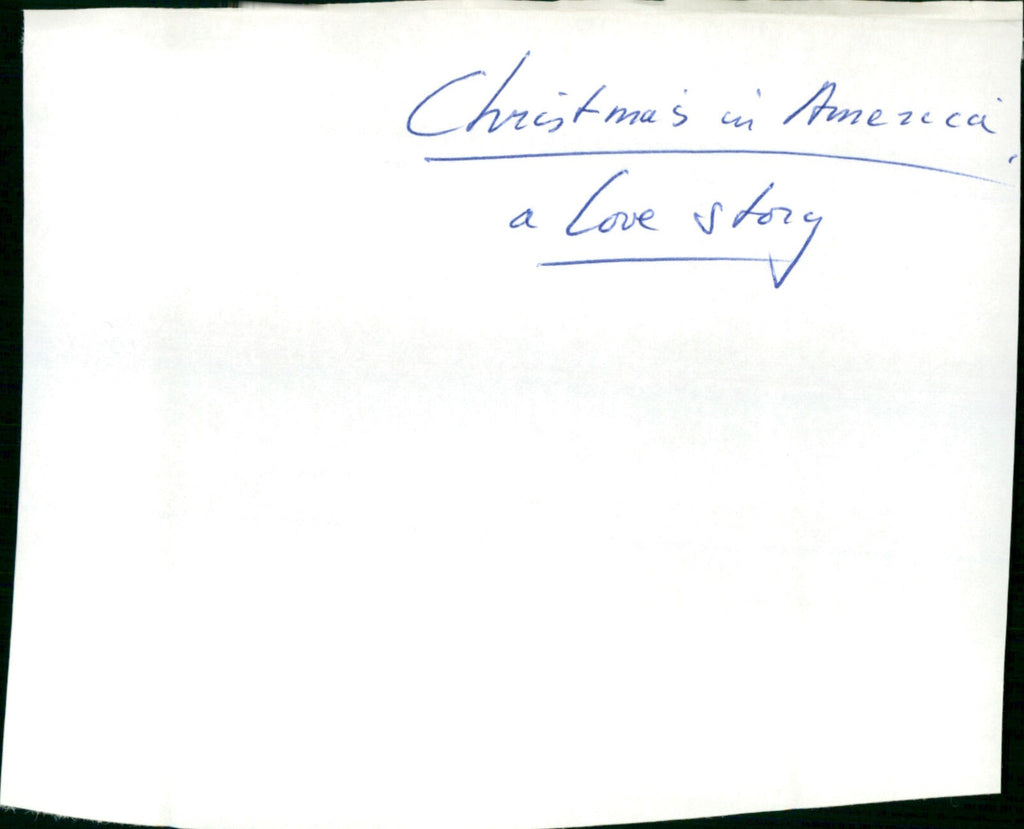 Christmas in America,
a Love story